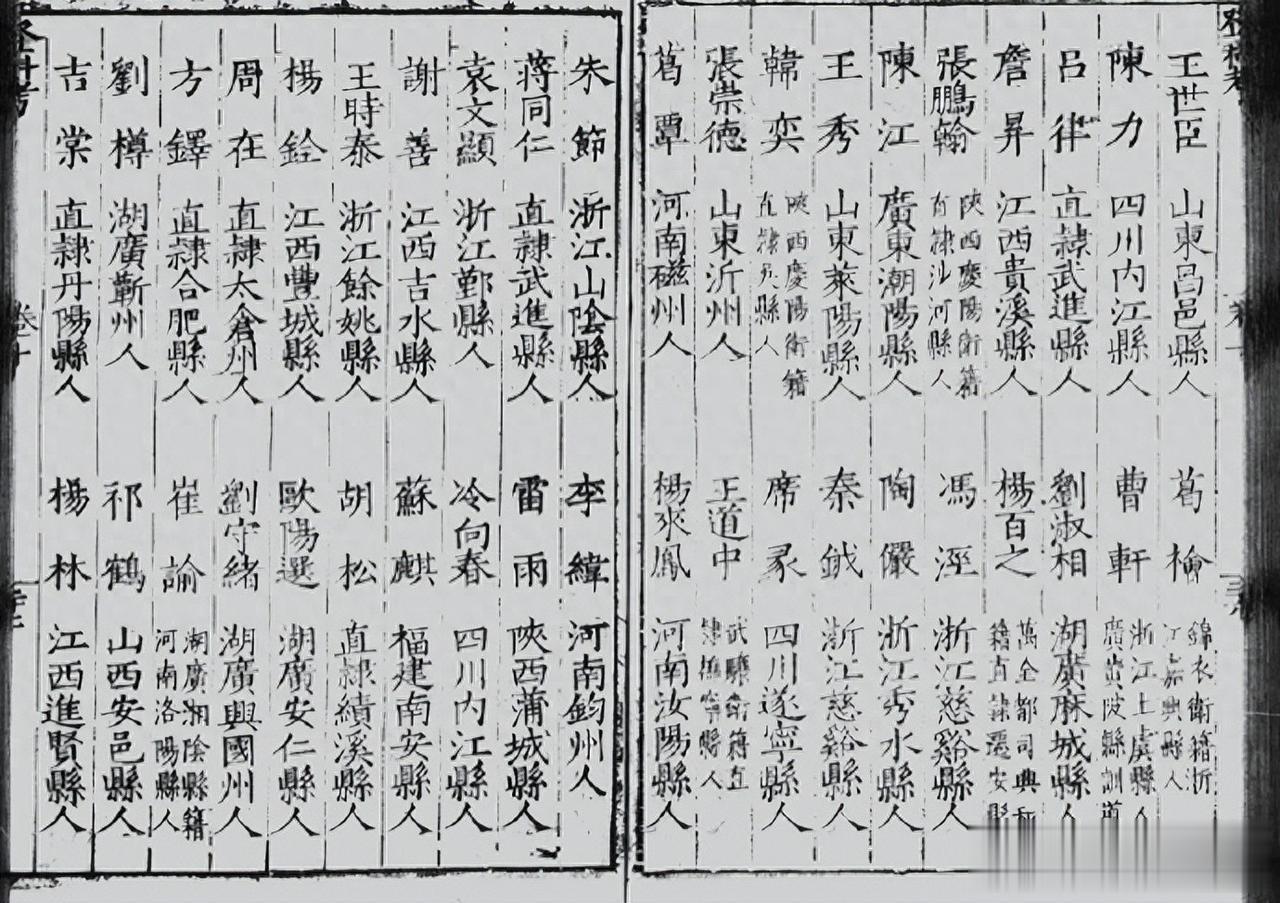 王世臣 山東昌邑縣人 葛檜 錦衣衛籍浙江嘉興縣人
陳力 四川内江縣人 曹軒 浙江上虞縣人廣東 縣訓導
呂律 直隷武進縣人 劉淑相 湖廣麻城縣人
詹昇 江西貴溪縣人 楊百之 萬全都司興和 籍直隷遷安縣
張鵬翰 陜西慶陽衛籍直隷沙河縣人 馮涇 浙江慈谿縣人
陳江 廣東潮陽縣人 陶儼 浙江秀水縣人
王秀 山東萊陽縣人 秦鉞 浙江慈谿縣人
韓奕 陜西慶陽衛籍直隷 縣人 席彖 四川遂寧縣人
張崇德 山東沂州人 王道中 武驤衛籍直隷撫寧縣人
葛覃 河南磁州人 楊來鳳 河南汝陽縣人
朱節 浙江山陰縣人 李緯 河南鈞州人
蔣同仁 直隷武進縣人 雷雨 陜西蒲城縣人
袁文顯 浙江鄞縣人 冷向春 四川内江縣人
謝善 江西吉水縣人 蘇麒 福建南安縣人
王時泰 浙江餘姚縣人 胡松 直隷績溪縣人
楊銓 江西豐城縣人 歐陽選 湖廣安仁縣人
周在 直隷太倉州人 劉守緒 湖廣興國州人
方鐸 直隷合肥縣人 崔諭 湖廣湘陰縣籍河南洛陽縣人
劉樽 湖廣蘄州人 祁鶴 山西安邑縣人
吉棠 直隷丹陽縣人 楊林 江西進賢縣人
登科考
卷十